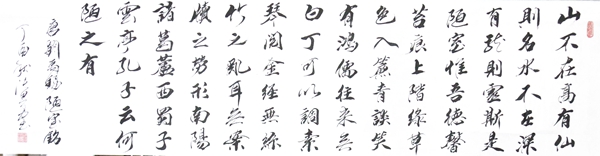 山不在高有仙
則名水不在深
有龍則靈斯是
陋室惟吾德馨
苔痕上階綠草
色入簾青談笑
有鴻儒往來無
白丁可以調素
琴閱金經無絲
竹之亂耳無案
牘之勞形南陽
諸葛廬西蜀子
雲亭孔子云何
陋之有
唐劉禹錫陋室銘
丁酉